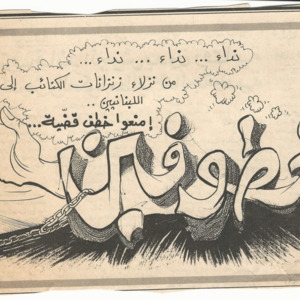 نداء... نداء... نداء...
من نزلاء زنزانات الكتائب إلى
اللبنانيين..
إمنعوا خطف قضية...
خطوفين